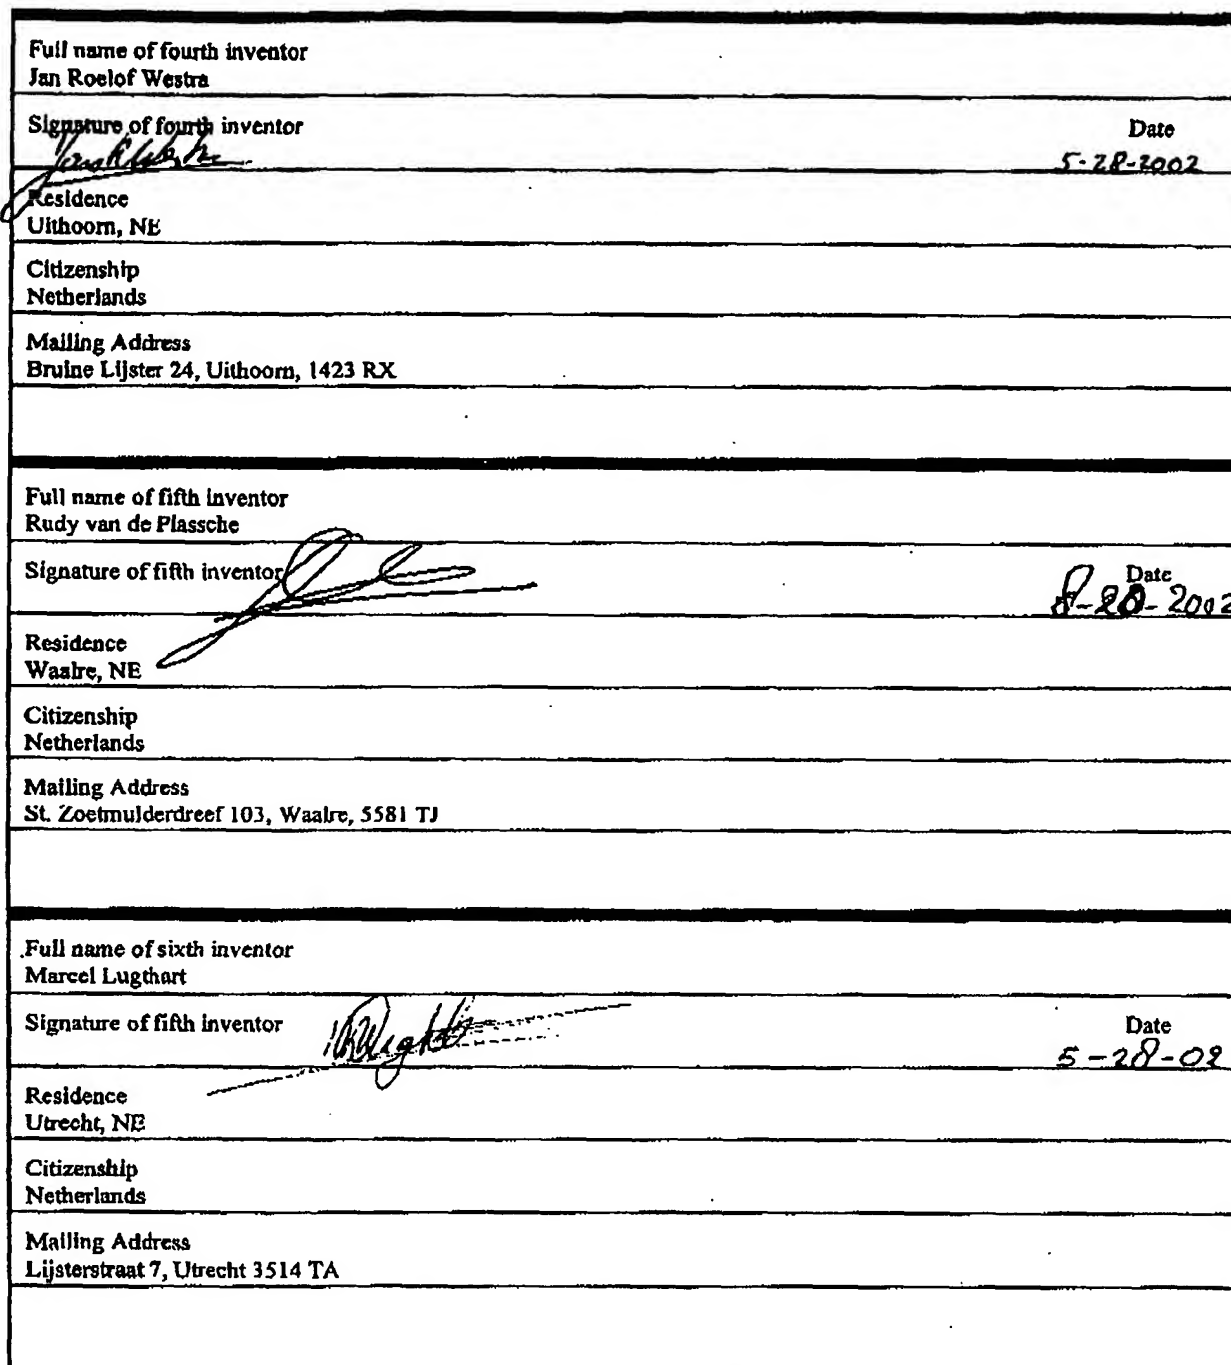 Full name of fourth inventor
Jan Roelof Westra
Signature of fourth inventor
Date
5-28-2002
Residence
Uithoorn, NE
Citizenship
Netherlands
Mailing Address
Bruine Lijster 24, Uithoorn, 1423 RX
Full name of fifth inventor
Rudy van de Plassche
Signature of fifth inventor
Date
Residence
Waalre, NE
Citizenship
Netherlands
Mailing Address
St. Zoetmulderdreef 103, Waalre, 5581 TJ
Full name of sixth inventor
Marcel Lugthart
Signature of fifth inventor
Date
5-28-02
Residence
Utrecht, NE
Citizenship
Netherlands
Mailing Address
Lijsterstraat 7, Utrecht 3514 TA